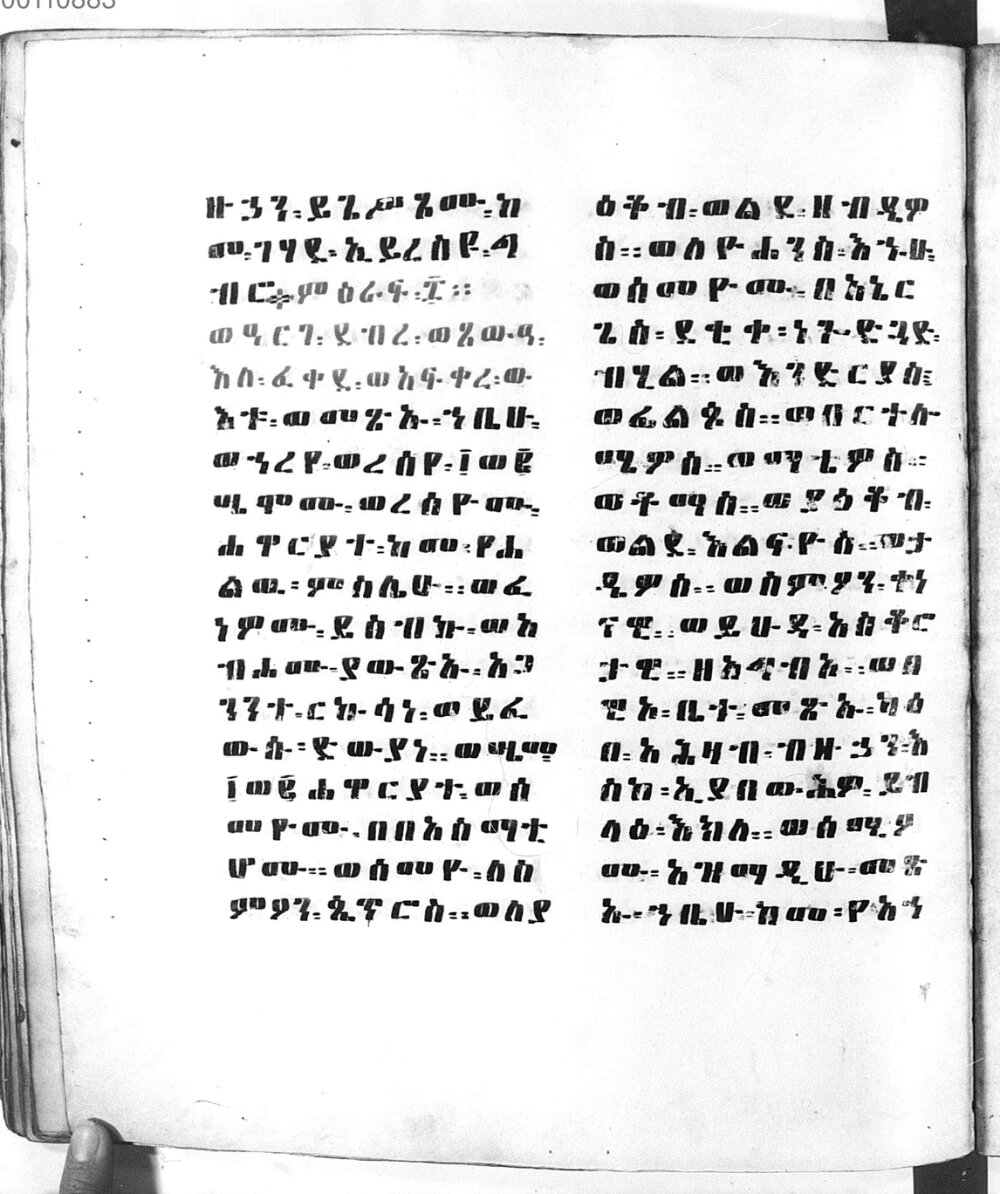 00110883
ዙኃን፡ይጌሥጽዎሙ፡ከ
መ፡ገሃደ፡ኢይረስዩ፡ጫ
ብር፨ምዕራፍ፡፲፡፡
ወዓርገ፡ደብረ፡ወጸውዓ፡
እለ፡ፈቀደ፡ወአፍቀረ፡ው
እቱ፡ወመጽኡ፡ኀቤሁ፡
ወኀረየ፡ወረሰየ፡፲ወ፪
ሢሞሙ፡ወረሰዮሙ፡
ሐዋርያተ፡ከመ፡የሐ
ልዉ፡ምስሌሁ፡፡ወፈ
ነዎሙ፡ይስብኩ፡ወአ
ብሐሙ፡ያውጽኡ፡አጋ
ንንተ፡ርኩሳነ፡ወይፈ
ውሱ፡ድውያነ፡፡ወሢሞ
፲ወ፪ሐዋርያተ፡ወሰ
መዮሙ፡በበአስማቲ
ሆሙ፡፡ወሰመዮ፡ለስ
ምዖን፡ጴጥርስ፡፡ወለያ
ዕቆብ፡ወልደ፡ዘብዲዎ
ስ፡፡ወለዮሐንስ፡እኁሁ፡
ወሰመዮሙ፡በአኔር
ጌስ፡ደቂቀ፡ነጐድጓድ፡
ብሂል፡፡ወእንድርያስ፡
ወፊልጶስ፡፡ወበርተሉ
ሜዎስ፡፡ወማቴዎስ፡፡
ወቶማስ፡፡ወያዕቆብ፡
ወልደ፡እልፍዮስ፡፡ወታ
ዴዎስ፡፡ወስምዖን፡ቀነ
ናዊ፡፡ወይሁዳ፡አስቆሮ
ታዊ፡፡ዘአግብአ፡፡ወበ
ዊአ፡ቤተ፡መጽኡ፡ካዕ
በ፡አሕዛብ፡ብዙኃን፡እ
ስከ፡ኢያበውሕዎ፡ይብ
ላዕ፡እክለ፡፡ወሰሚዖ
ሙ፡አዝማዲሁ፡መጽ
ኡ፡ኀቤሁ፡ከመ፡የአኀ